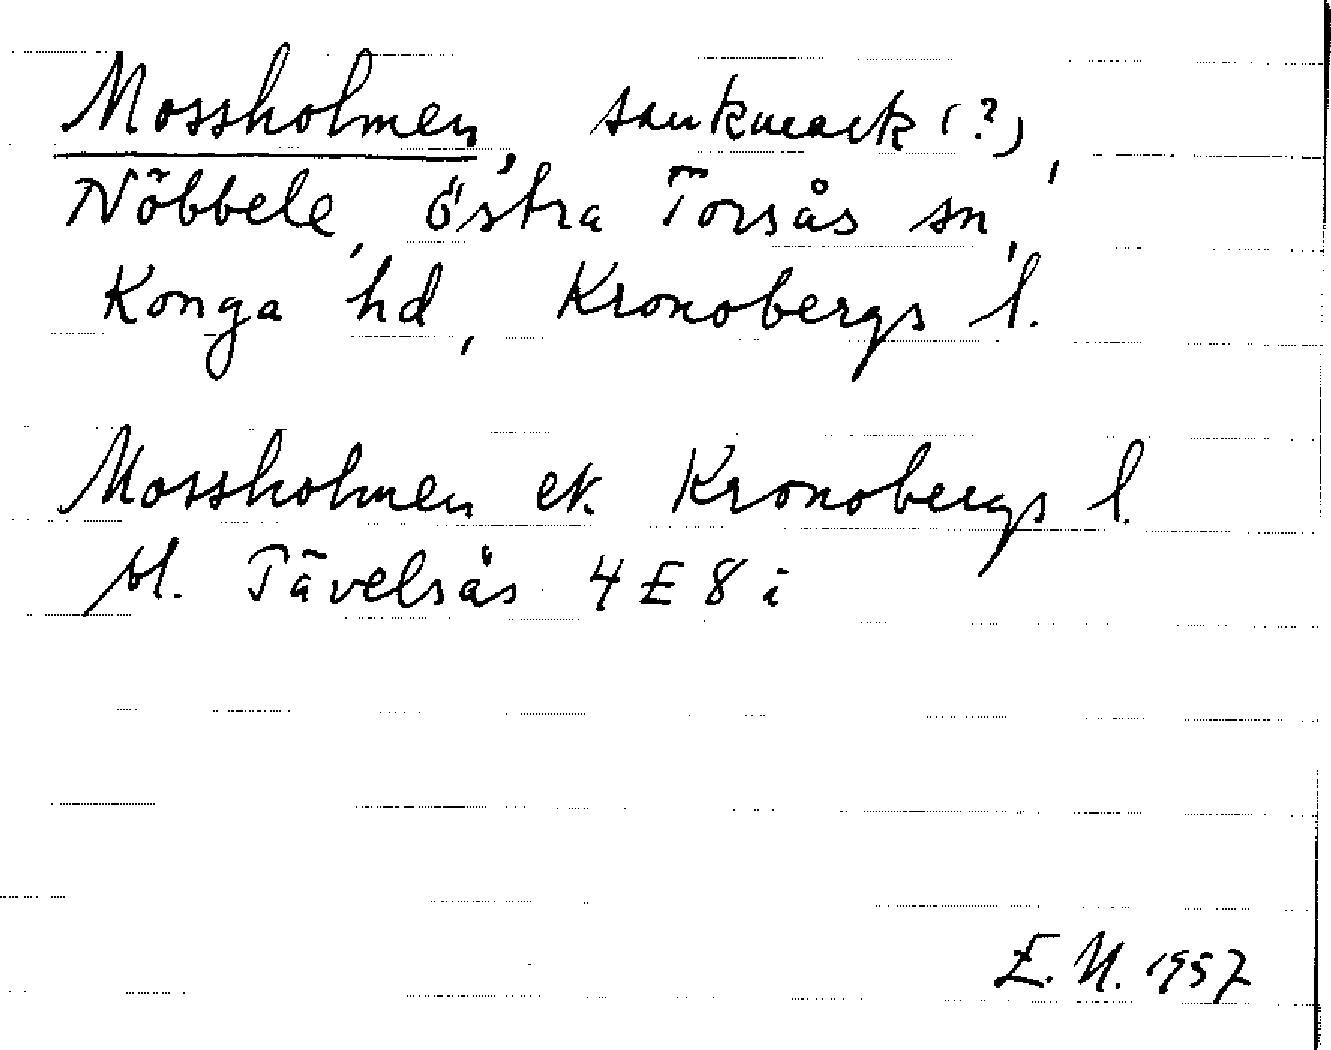 Mossholmen, sankmark (?),
Nöbbele, Östra Torsås sn,
Konga hd, Kronobergs l.
Mossholmen ek. Kronobergs l.
bl. Tävelsås 4 E 8 i
E. N. 1957